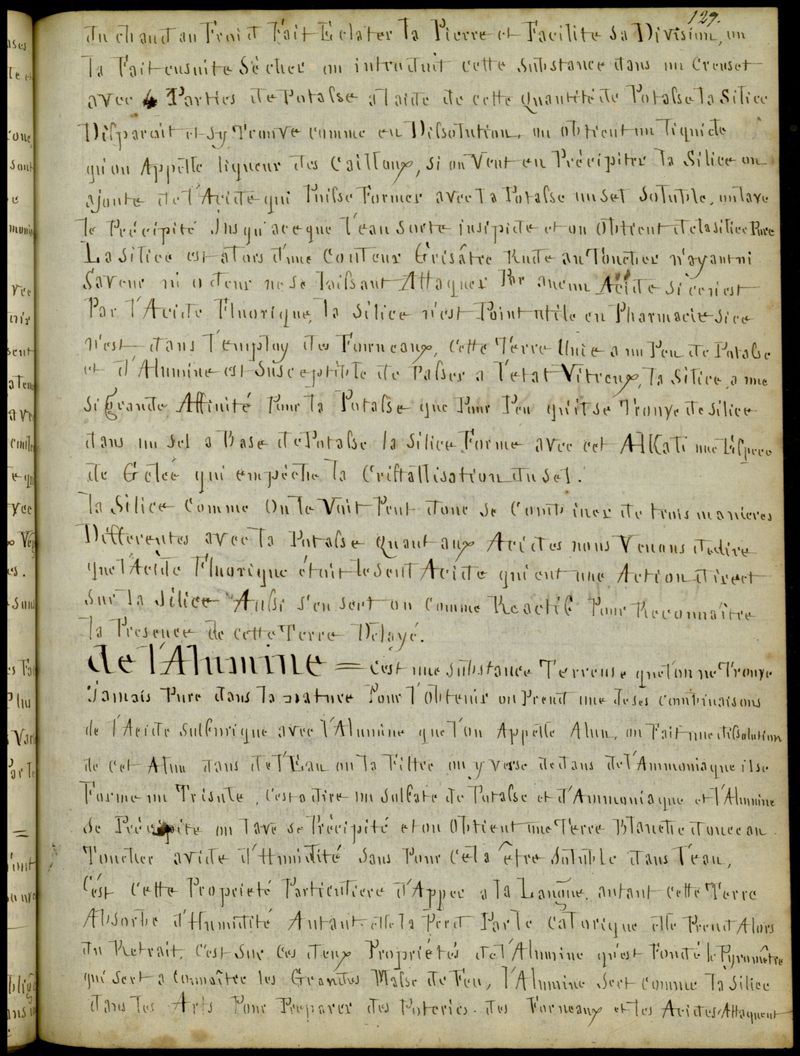 129.
du chaud au Froid Fait Eclater la Pierre et Facilite Sa Division, on
la Fait ensuite Secher on introduit cette Substance dans un Creuset
avec 4 Parties de Potasse a laide de cette quantité de Potasse la Silice
Disparait et sy Trouve comme en Dissolution, on obtient un liquide
qu'on Appelle liqueur des Cailloux, Si on Veut en Précipiter la Silice on
ajoute de l'Acide qui Puisse Former avec la Potasse un Sel Soluble, on lave
le Précipité Jusqu'a ce que l'eau Sorte insipide et on Obtient de la Silice Pure
La Silice est alors d'une Couleur Grisâtre Rude au Toucher n'ayant ni
Saveur ni odeur ne se laissant Attaquer Par aucun Acide Si ce n'est
Par l'Acide Fluorique, la Silice n'est Point utile en Pharmacie Si ce
n'est dans l'employ des Fourneaux, Cette Terre Unie a un Peu de Potasse
et d'Alumine est Susceptible de Passer a l'etat Vitreux, la Silice a une
Si Grande Affinité Pour la Potasse que Pour Peu qu'il Se Trouve de Silice
dans un Sel a Base de Potasse la Silice Forme avec cet Alkali une Espece
de Gelée qui empêche la Cristallisation du Sel.
la Silice Comme On le Voit Peut donc Se Combiner de trois manieres
Differentes avec la Potasse Quant aux Acides nous Venons de dire
que l'Acide Fluorique étoit le Seul Acide qui eut une Action direct
Sur la Silice Aussi s'en sert on Comme Reactif Pour Reconnaître
la Presence de cette Terre Delayé.
de l'Alumine = C'est une Substance Terreuse que l'on ne Trouve
Jamais Pure dans la nature Pour l'Obtenir on Prend une de ses Combinaisons
de l'Acide Sulfurique avec l'Alumine que l'on Appelle Alun, on Fait une dissolution
de cet Alun dans de l'Eau on la Filtre on y verse dedans de l'Ammoniaque il se
Forme un Trisule, C'est a dire un Sulfate de Potasse et d'Ammoniaque et l'Alumine
Se Précipite on lave Se Précipité et on Obtient une Terre Blanche douce au
Toucher avide d'Humidité Sans Pour Cela être Soluble dans l'eau,
C'est Cette Proprieté Particuliere d'Apper a la Langue, autant Cette Terre
Absorbe d'Humidité Autant elle la Perd Par le Calorique elle Prend Alors
du Retrait, C'est Sur Ces deux Proprietés de l'Alumine qu'est Fondé le Pyromêtre
qui Sert a Connaître les Grandes Masse de Feu, l'Alumine Sert Comme la Silice
dans les Arts Pour Préparer des Poteries. des Forneaux et les Acides Attaquent